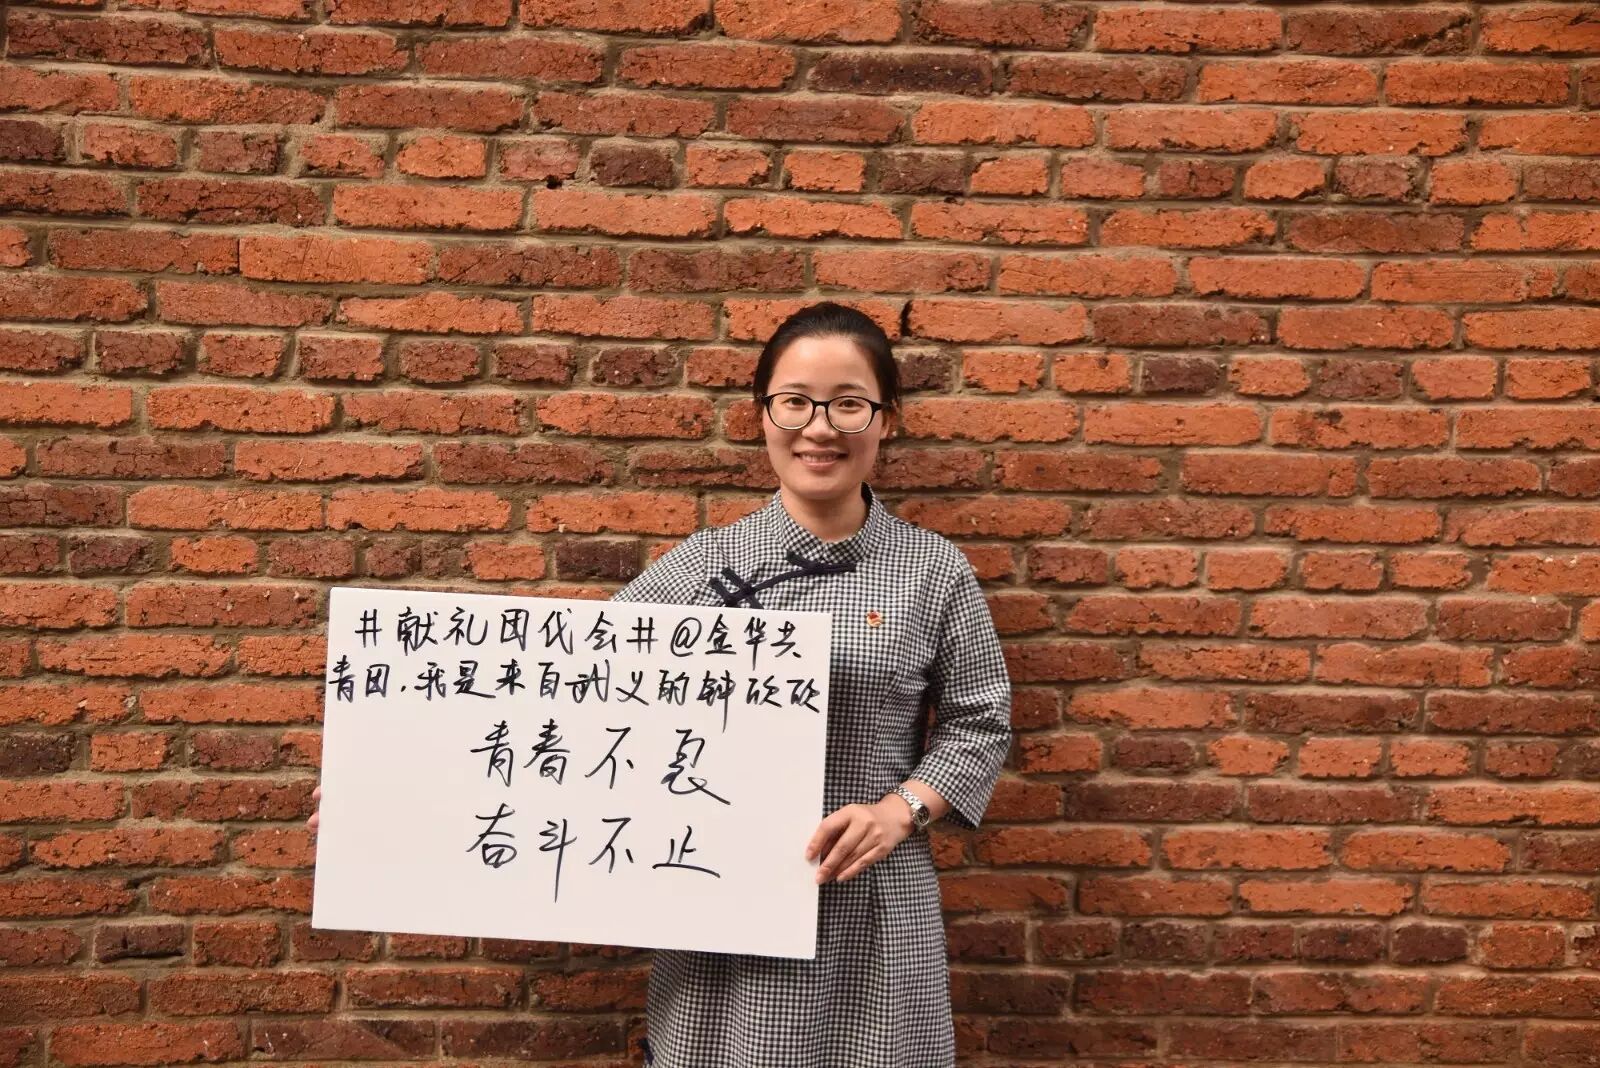 #献礼团代会#@金华共
青团,我是来自武义的钟欣欣
青春不息
奋斗不止